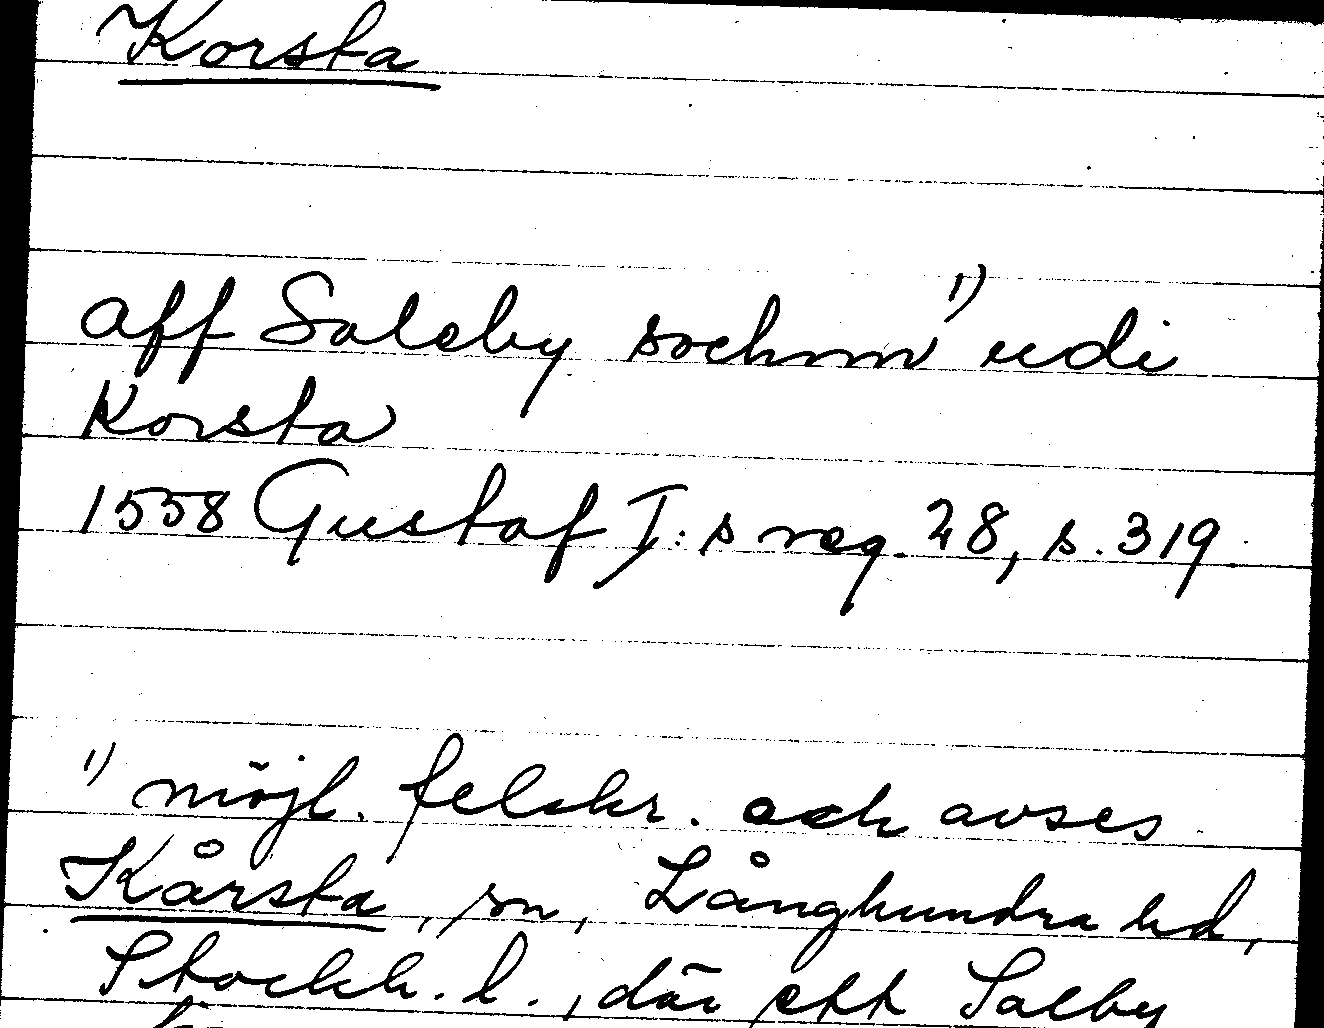 Korsta
aff Saleby sochnn ¹⁾ udi
Korsta
1558 Gustaf I:s reg. 28, s. 319
¹⁾ möjl. felskr. och avses
Kårsta, sn, Långhundra hd,
Stockh. l., där ett Salby